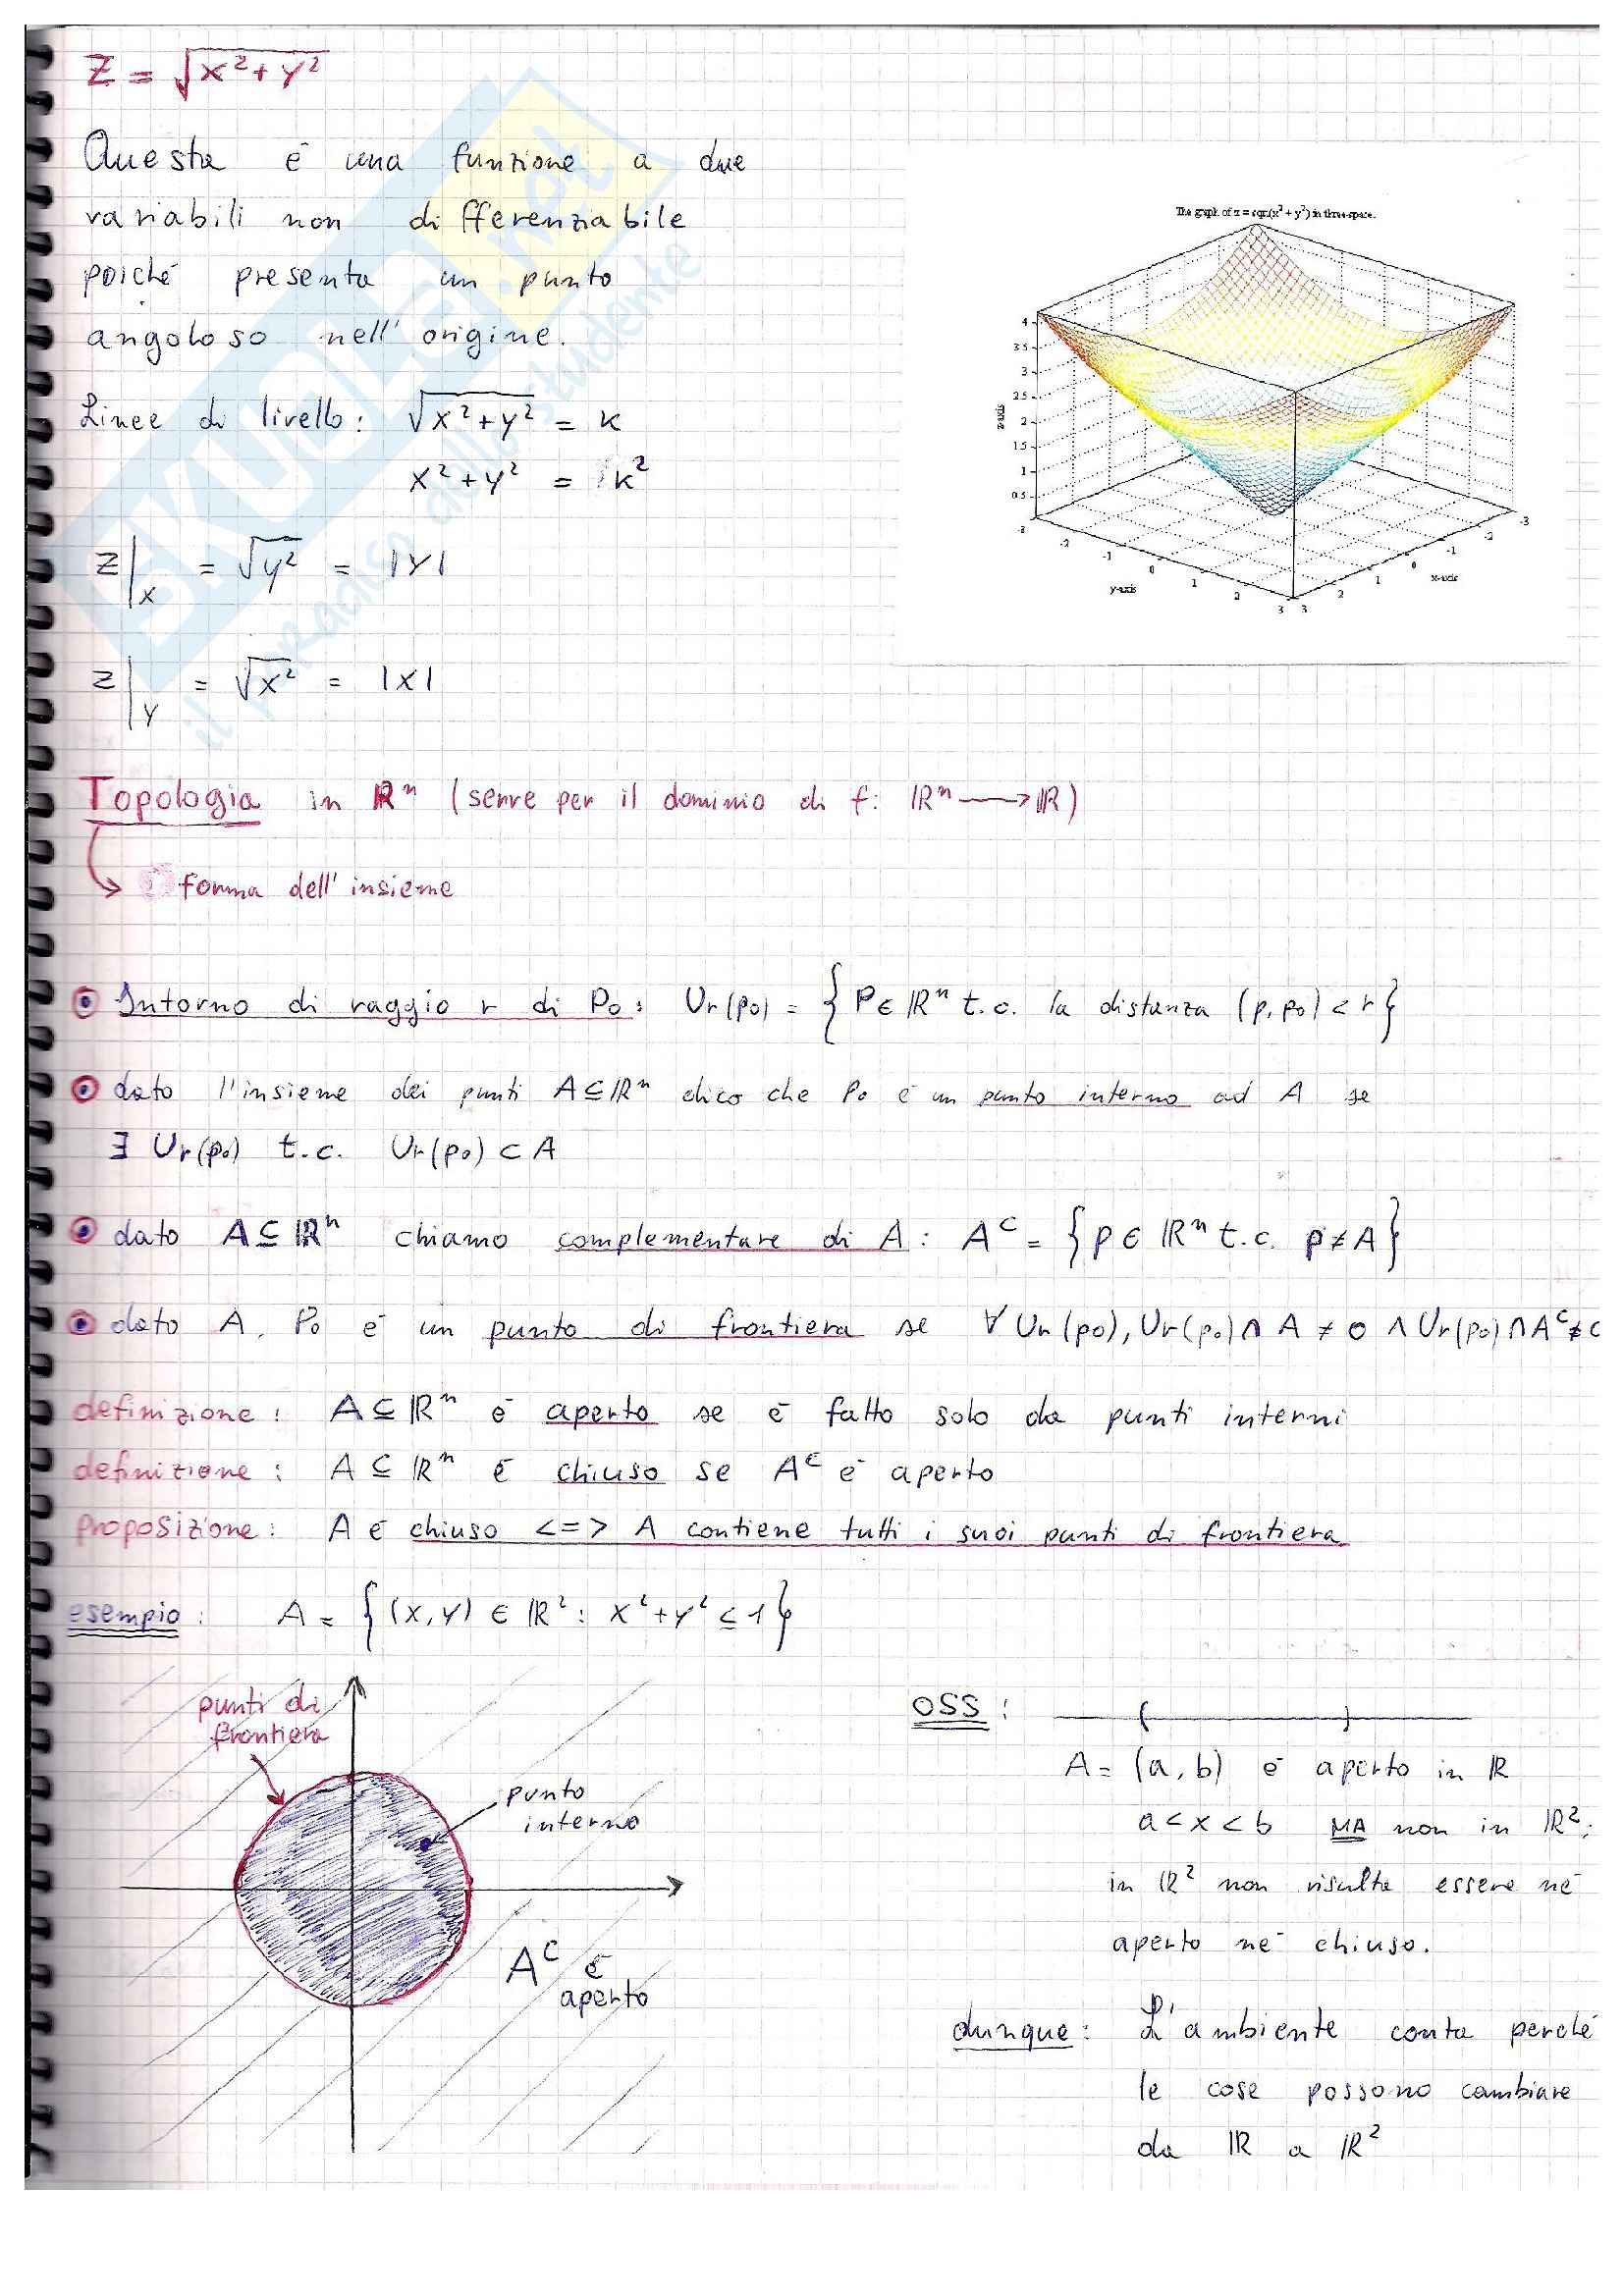 Z = √x²+y²
Questa è una funzione a due
variabili non differenziabile
poiché presenta un punto
angoloso nell'origine.
Linee di livello: √x²+y² = k
x²+y² = k²
Z|x = √y² = |y|
Z|y = √x² = |x|
The graph of z = sqrt(x² + y²) in three-space.
z-axis
4
3.5
3
2.5
2
1.5
1
0.5
-3 -2 -1 0 1 2 3
y-axis
3 2 1 0 -1 -2 -3
x-axis
SKUOLA.net
il paradiso dello studente
Topologia in ℝⁿ (serve per il dominio di f: ℝⁿ → ℝ)
forma dell'insieme
Intorno di raggio r di P₀: Ur(p₀) = {P ∈ ℝⁿ t.c. la distanza (p, p₀) < r}
dato l'insieme dei punti A ⊆ ℝⁿ dico che P₀ è un punto interno ad A se
∃ Ur(p₀) t.c. Ur(p₀) ⊂ A
dato A ⊆ ℝⁿ chiamo complementare di A: Aᶜ = {p ∈ ℝⁿ t.c. p ∉ A}
dato A, P₀ è un punto di frontiera se ∀ Ur(p₀), Ur(p₀) ∩ A ≠ 0 ∧ Ur(p₀) ∩ Aᶜ ≠
definizione: A ⊆ ℝⁿ è aperto se è fatto solo da punti interni
definizione: A ⊆ ℝⁿ è chiuso se Aᶜ è aperto
proposizione: A è chiuso <=> A contiene tutti i suoi punti di frontiera
esempio: A = {(x,y) ∈ ℝ² : x²+y² ≤ 1}
punti di
frontiera
punto
interno
Aᶜ è
aperto
OSS:
A = (a, b) è aperto in ℝ
a < x < b MA non in ℝ²;
in ℝ² non risulta essere né
aperto né chiuso.
dunque: L'ambiente conta perché
le cose possono cambiare
da ℝ a ℝ²